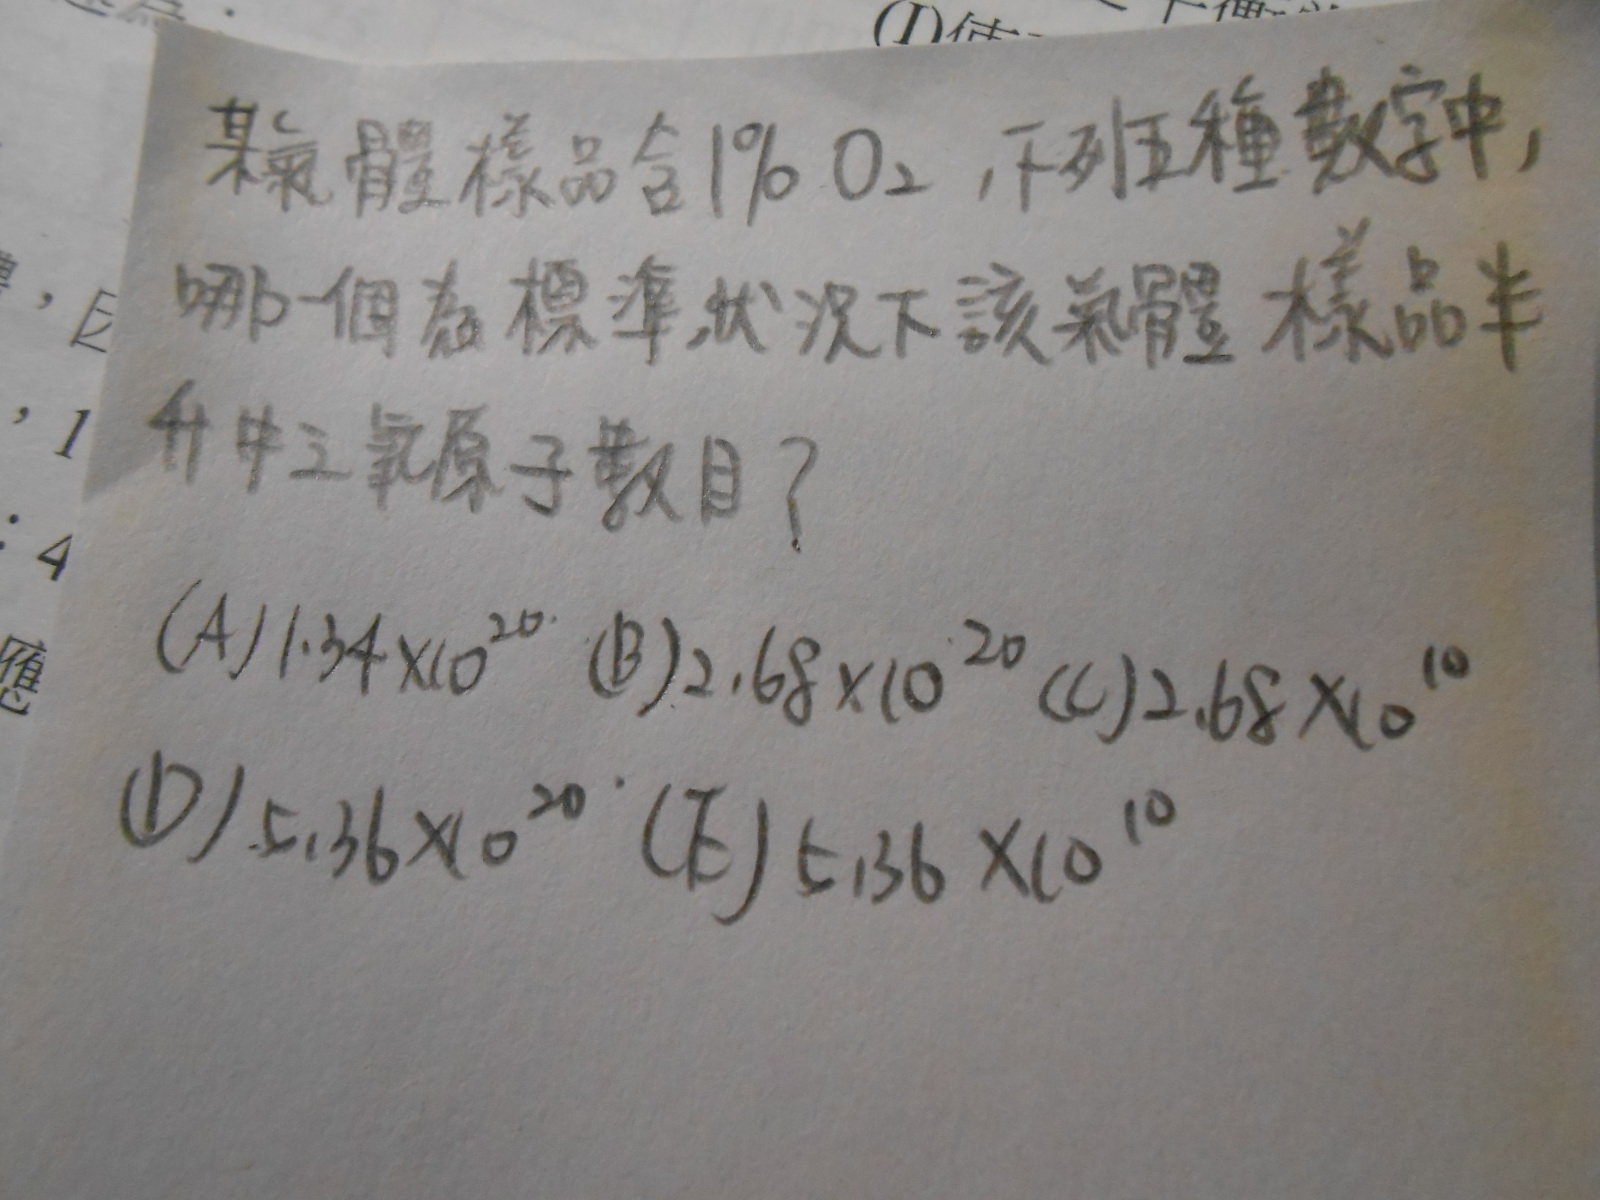 (I)使
某氣體樣品含1% O₂，下列五種數字中，
哪一個為標準狀況下該氣體樣品半
升中之氧原子數目？
(A)1.34×10²⁰ (B)2.68×10²⁰ (C)2.68×10¹⁰
(D)5.36×10²⁰ (E)5.36×10¹⁰
，1
：4
應